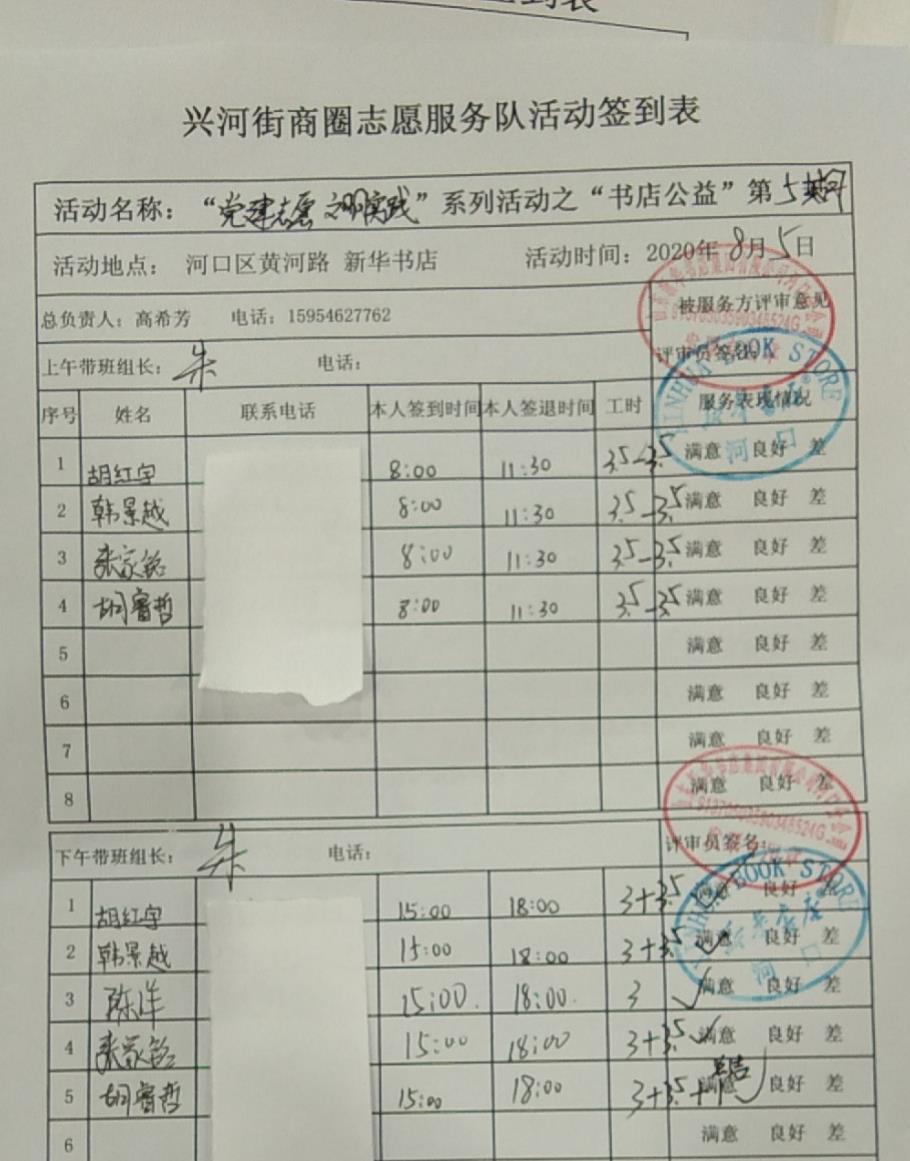 兴河街商圈志愿服务队活动签到表
活动名称：“党建志愿 文明实践”系列活动之“书店公益”第5期
活动地点： 河口区黄河路 新华书店 活动时间：2020年8月5日
总负责人：高希芳 电话：15954627762 被服务方评审意见
上午带班组长：朱 电话： 评审员签名：
序号 姓名 联系电话 本人签到时间 本人签退时间 工时 服务表现情况
1 胡红宇 8:00 11:30 3.5-3.5 满意 良好 差
2 韩景越 8:00 11:30 3.5-3.5 满意 良好 差
3 张家铭 8:00 11:30 3.5-3.5 满意 良好 差
4 胡睿哲 8:00 11:30 3.5-3.5 满意 良好 差
5 满意 良好 差
6 满意 良好 差
7 满意 良好 差
8 满意 良好 差
XINHUA BOOK STORE
河口
下午带班组长：朱 电话： 评审员签名：
1 胡红宇 15:00 18:00 3+3.5 满意 良好 差
2 韩景越 15:00 18:00 3+3.5 满意 良好 差
3 陈洋 15:00 18:00 3 满意 良好 差
4 张家铭 15:00 18:00 3+3.5 满意 良好 差
5 胡睿哲 15:00 18:00 3+3.5+1 满意 良好 差
6 满意 良好 差
XINHUA BOOK STORE
河口